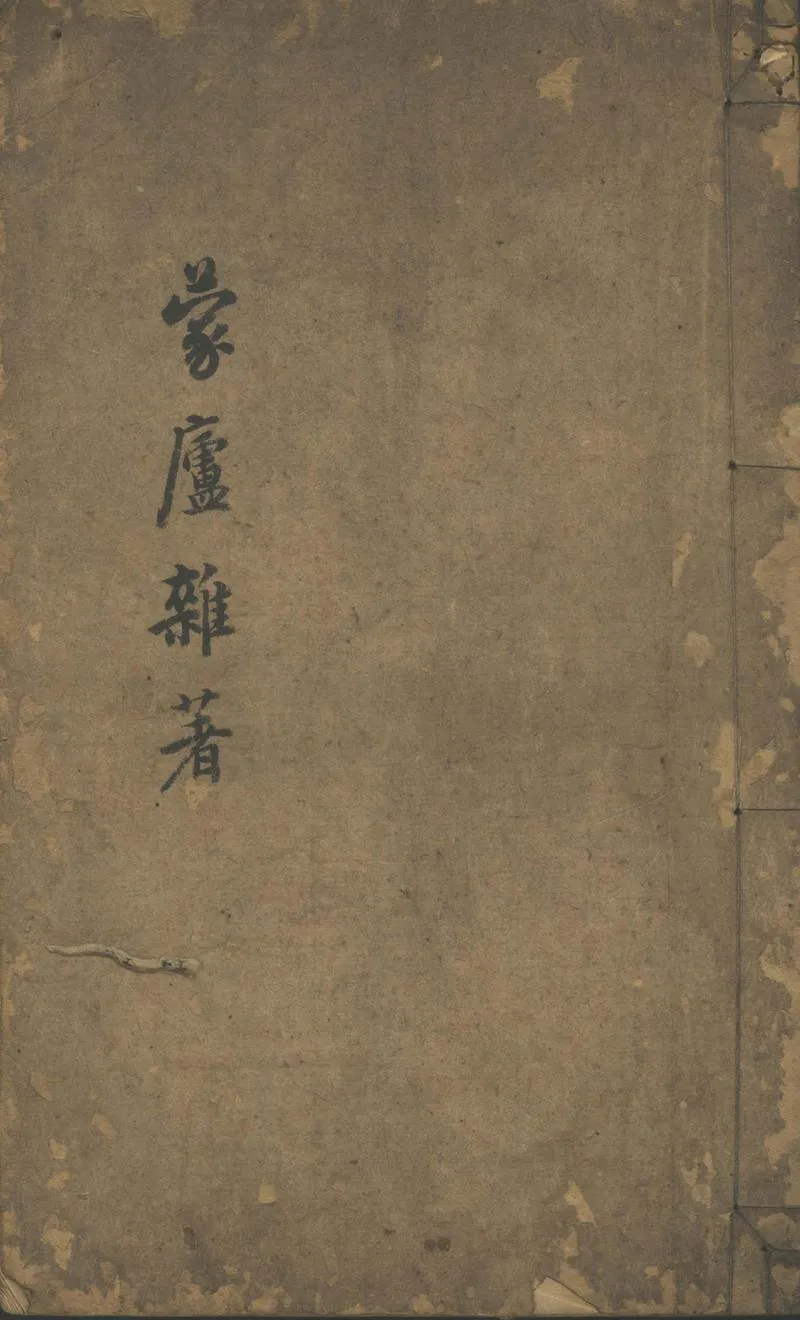 蒙廬雜著